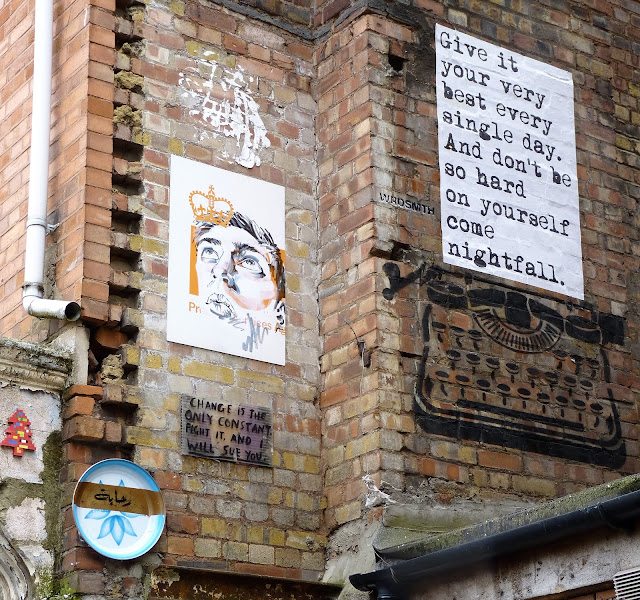 Give it
your very
best every
single day.
And don't be
so hard
on yourself
come
nightfall.
WRDSMTH
CHANGE IS THE
ONLY CONSTANT.
FIGHT IT, AND I
WILL SUE YOU.